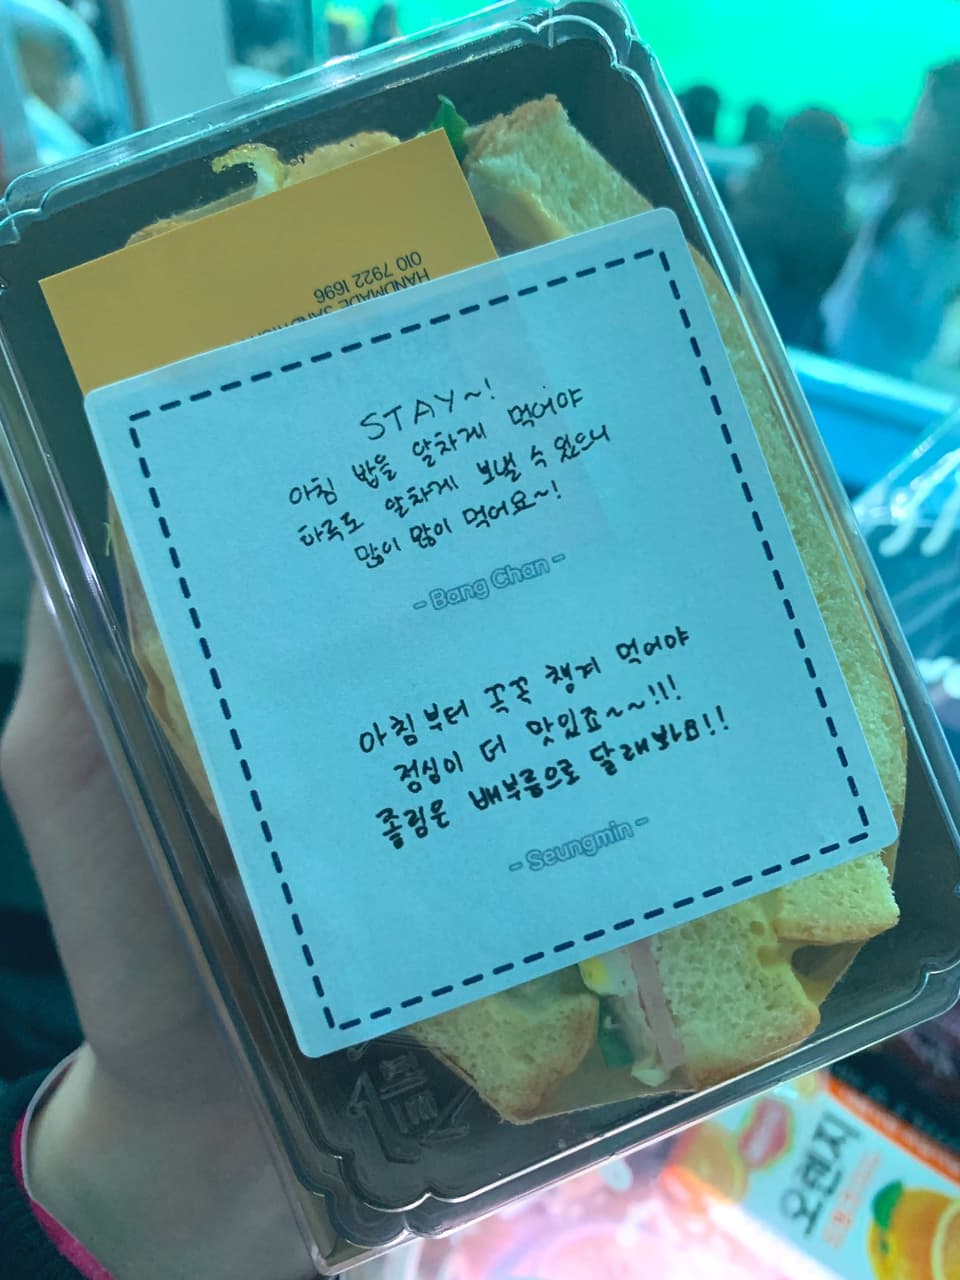 HANDMADE
010 7922 1696
STAY~!
아침 밥을 알차게 먹어야
하루도 알차게 보낼 수 있으니
많이 많이 먹어요~!
- Bang Chan -
아침부터 꼭꼭 챙겨 먹어야
점심이 더 맛있죠~~!!!
졸림은 배부름으로 달래봐요!!
- Seungmin -
오렌지